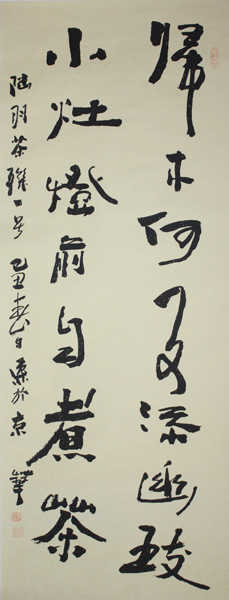 歸来何事添幽致
小灶燈前自煮茶
陸羽茶聯一 己丑春日 於京華